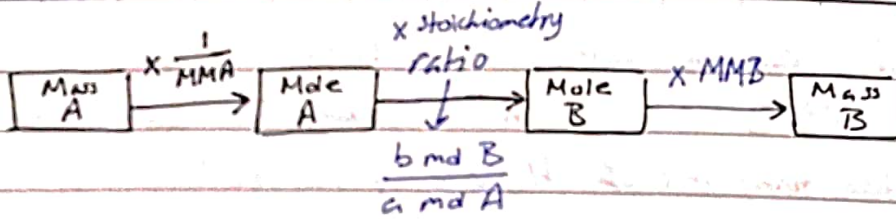 Mass A
x 1/MMA
Mole A
x stoichiometry ratio
b mol B
a mol A
Mole B
x MMB
Mass B